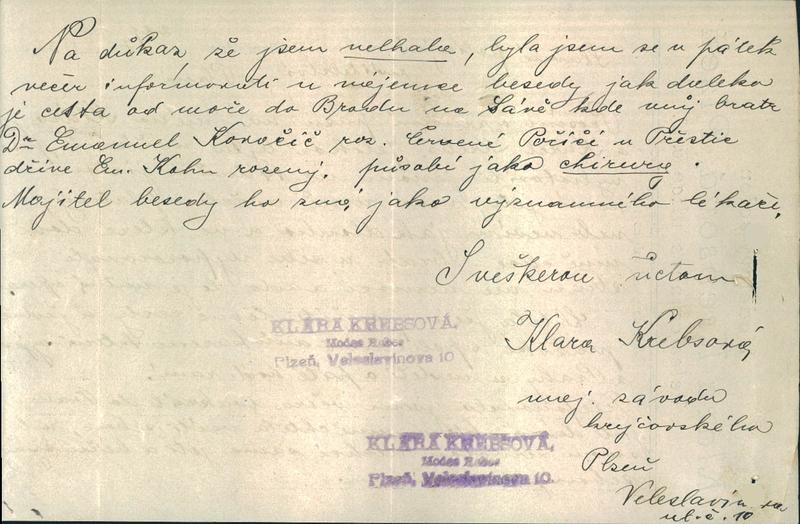 Na důkaz, že jsem nelhala, byla jsem se v pátek
večer informovati u nájemce besedy jak daleko
je cesta od moře do Brodu na Sávě kde můj bratr
Dr Emanuel Kovačič roz. Červené Poříčí u Přeštic
dříve Em. Kohn rosený, působí jako chirurg.
Majitel besedy ho zná, jako významného lékaře,
S veškerou úctou
Klara Krebsová
maj. závodu
krejčovského
Plzeň
Veleslavín
ul. č. 10
KLÁRA KREBSOVÁ,
Modes Robes
Plzeň, Veleslavínova 10
KLÁRA KREBSOVÁ,
Modes Robes
Plzeň, Veleslavínova 10.